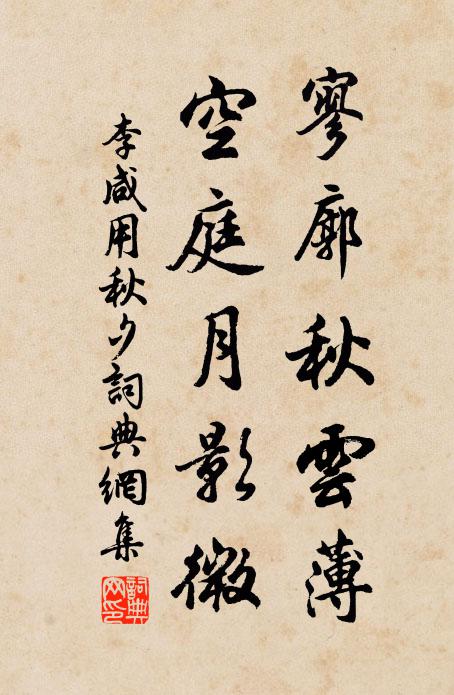 寥廓秋雲薄
空庭月影微
李咸用秋夕詞典網集
詞典網印